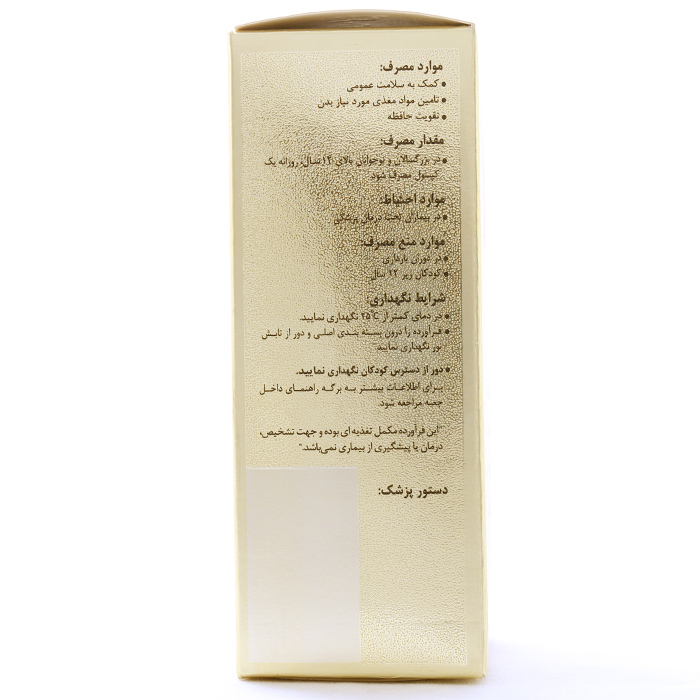 موارد مصرف:
• کمک به سلامت عمومی
• تامین مواد مغذی مورد نیاز بدن
• تقویت حافظه
مقدار مصرف:
• در بزرگسالان و نوجوانان بالای ۱۲ سال: روزانه یک
کپسول مصرف شود.
موارد احتیاط:
• در بیماران تحت درمان پزشکی
موارد منع مصرف:
• در دوران بارداری
• کودکان زیر ۱۲ سال
شرایط نگهداری:
• در دمای کمتر از ۲۵°C نگهداری نمایید.
• فرآورده را درون بسته بندی اصلی و دور از تابش
نور نگهداری نمایید.
• دور از دسترس کودکان نگهداری نمایید.
برای اطلاعات بیشتر به برگه راهنمای داخل
جعبه مراجعه شود.
"این فرآورده مکمل تغذیه ای بوده و جهت تشخیص،
درمان یا پیشگیری از بیماری نمی‌باشد."
دستور پزشک: